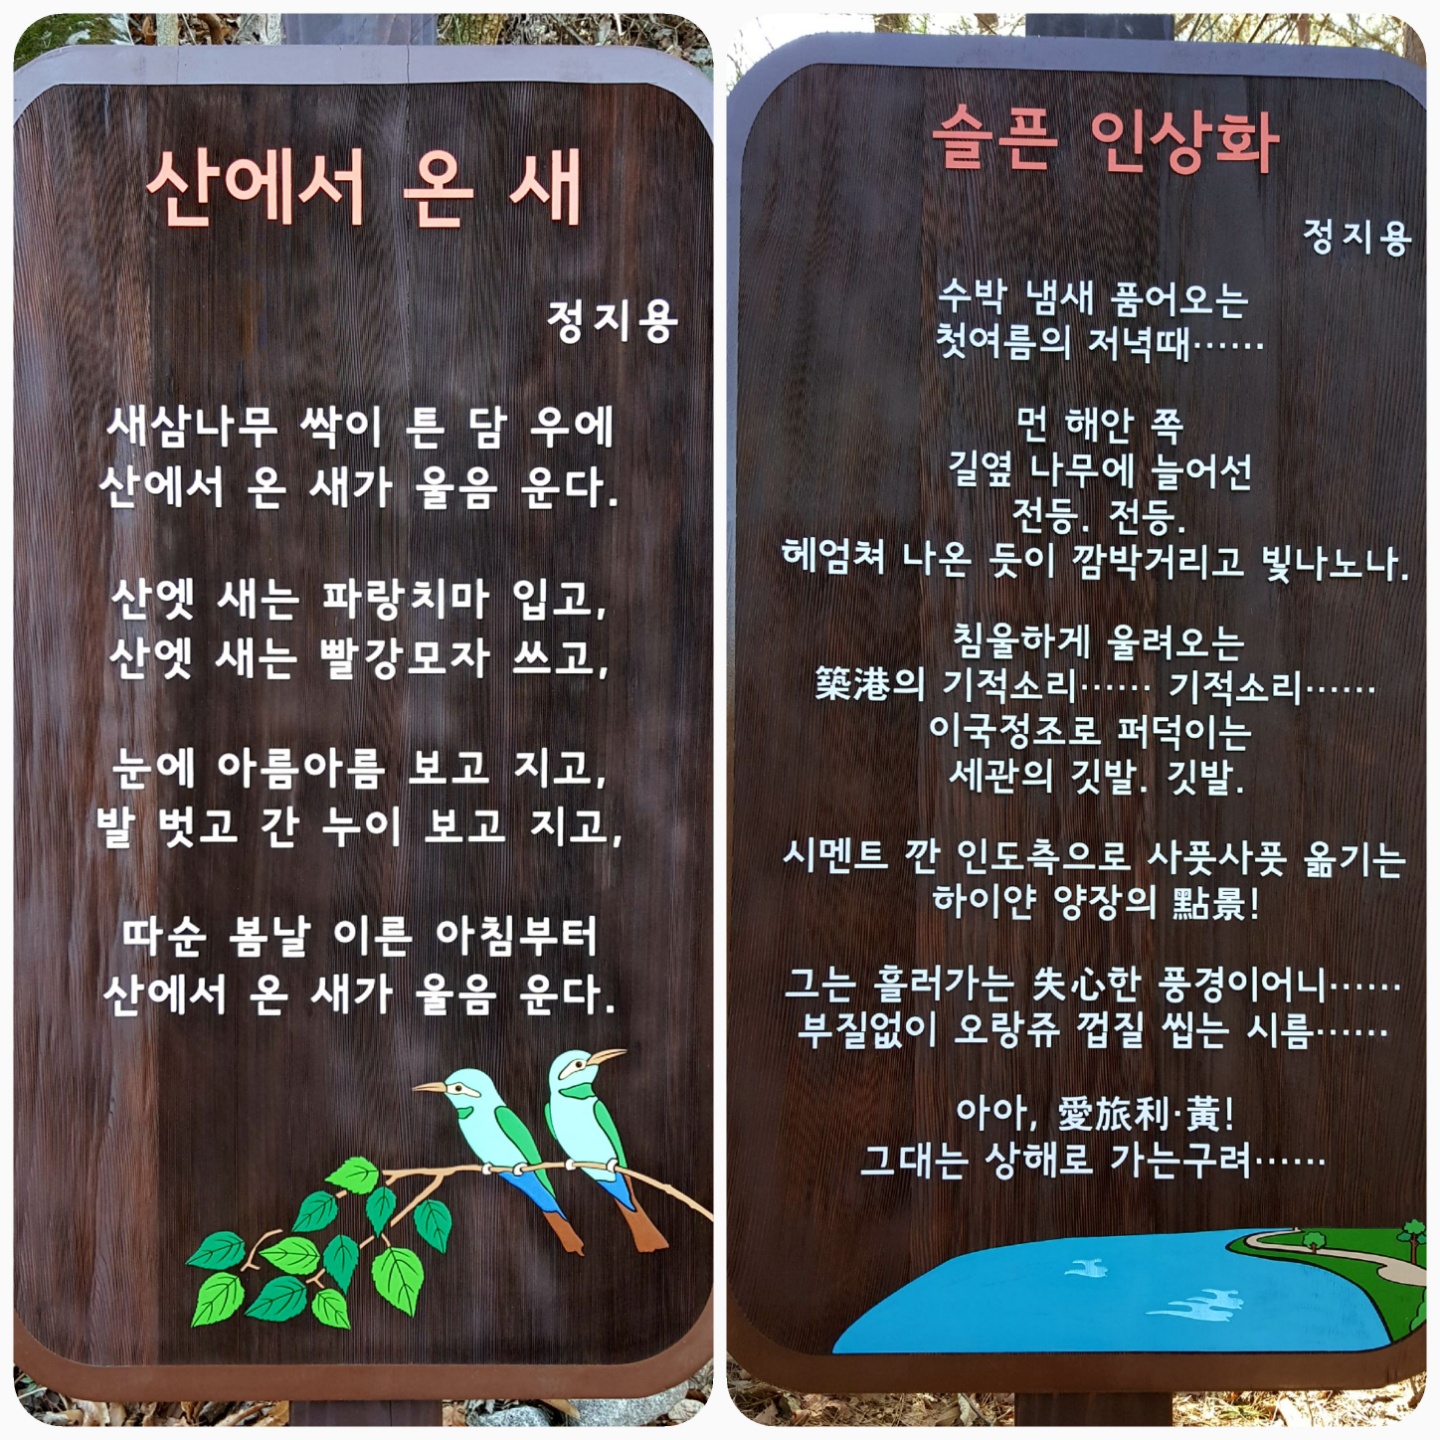 산에서 온 새
정지용
새삼나무 싹이 튼 담 우에
산에서 온 새가 울음 운다.
산엣 새는 파랑치마 입고,
산엣 새는 빨강모자 쓰고,
눈에 아름아름 보고 지고,
발 벗고 간 누이 보고 지고,
따순 봄날 이른 아침부터
산에서 온 새가 울음 운다.
슬픈 인상화
정지용
수박 냄새 품어오는
첫여름의 저녁때……
먼 해안 쪽
길옆 나무에 늘어선
전등. 전등.
헤엄쳐 나온 듯이 깜박거리고 빛나노나.
침울하게 울려오는
築港의 기적소리…… 기적소리……
이국정조로 퍼덕이는
세관의 깃발. 깃발.
시멘트 깐 인도측으로 사풋사풋 옮기는
하이얀 양장의 點景!
그는 흘러가는 失心한 풍경이어니……
부질없이 오랑쥬 껍질 씹는 시름……
아아, 愛旅利·黃!
그대는 상해로 가는구려……